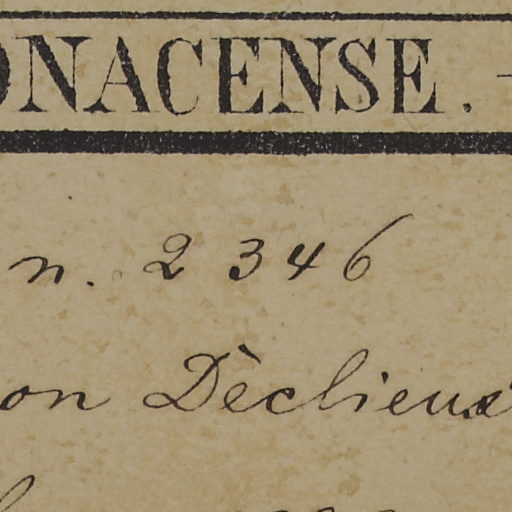 ONACENSE. -
n. 2346
on Dèclieux